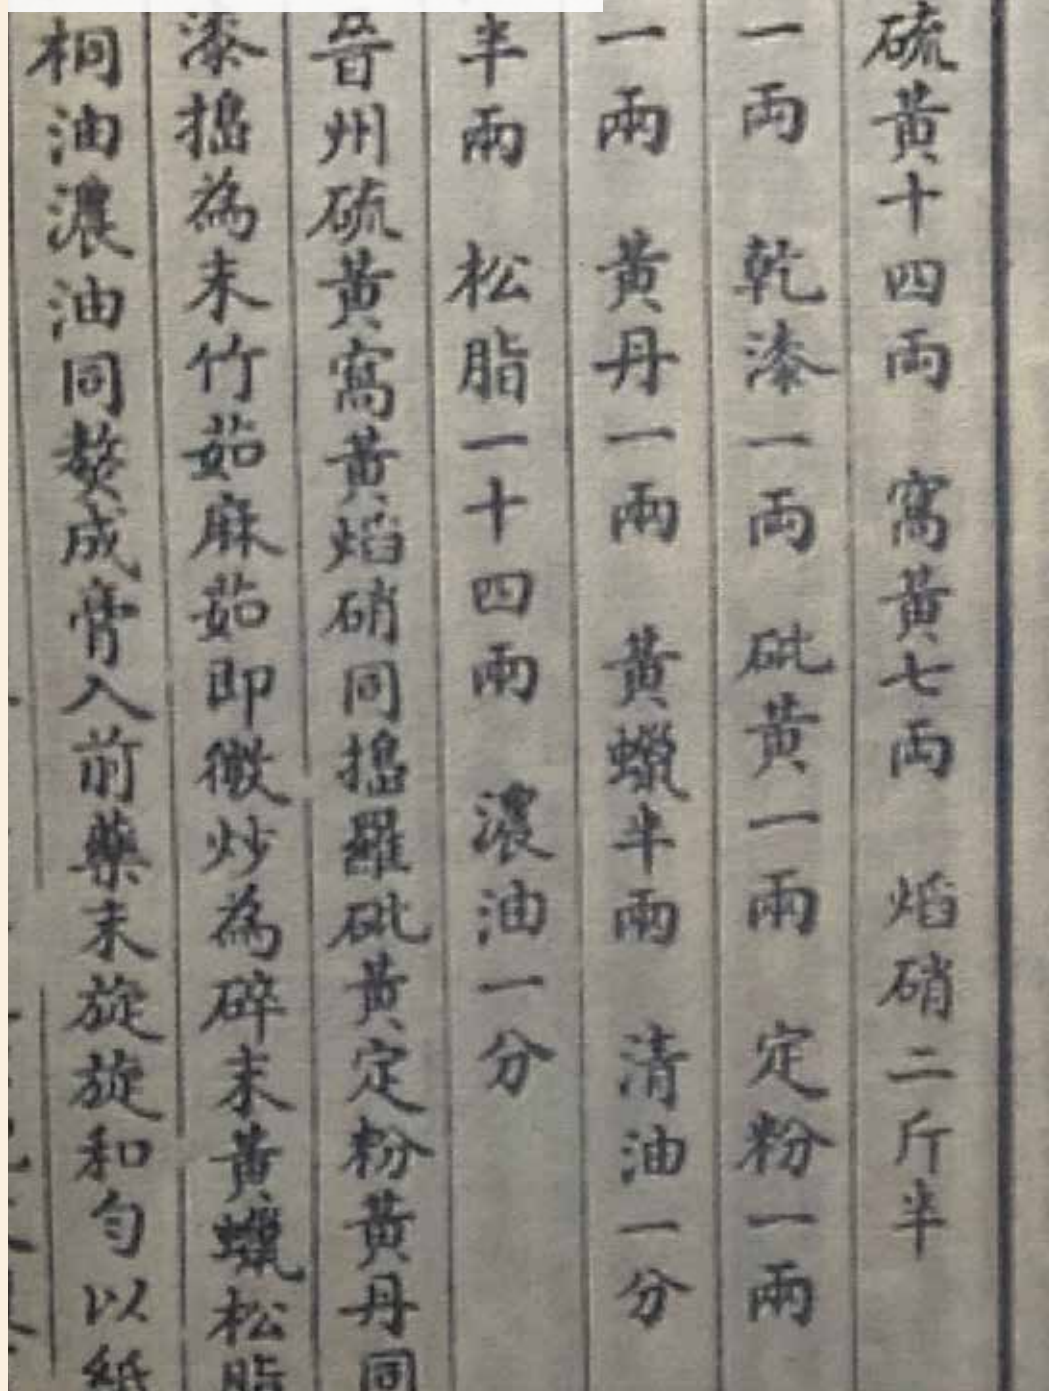 硫黃十四両　窩黃七両　焰硝二斤半
一両　乾漆一両　砒黃一兩　定粉一兩
一兩　黃丹一兩　黃蠟半兩　清油一分
半兩　松脂一十四兩　濃油一分
晉州硫黃窩黃焰硝同搗羅砒黃定粉黃丹同
漆搗為末竹茹麻茹即微炒為碎末黃蠟松脂
桐油濃油同熬成膏入前藥末旋旋和勻以紙